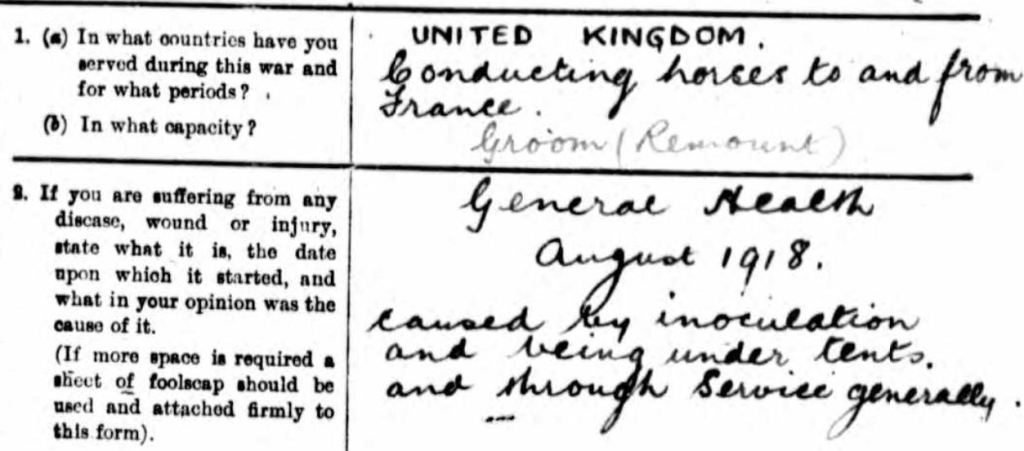 1. (a) In what countries have you
served during this war and
for what periods?
(b) In what capacity?
UNITED KINGDOM.
Conducting horses to and from
France.
Groom (Remount)
2. If you are suffering from any
disease, wound or injury,
state what it is, the date
upon which it started, and
what in your opinion was the
cause of it.
(If more space is required a
sheet of foolscap should be
used and attached firmly to
this form).
General Health
August 1918.
caused by inoculation
and being under tents.
and through Service generally.